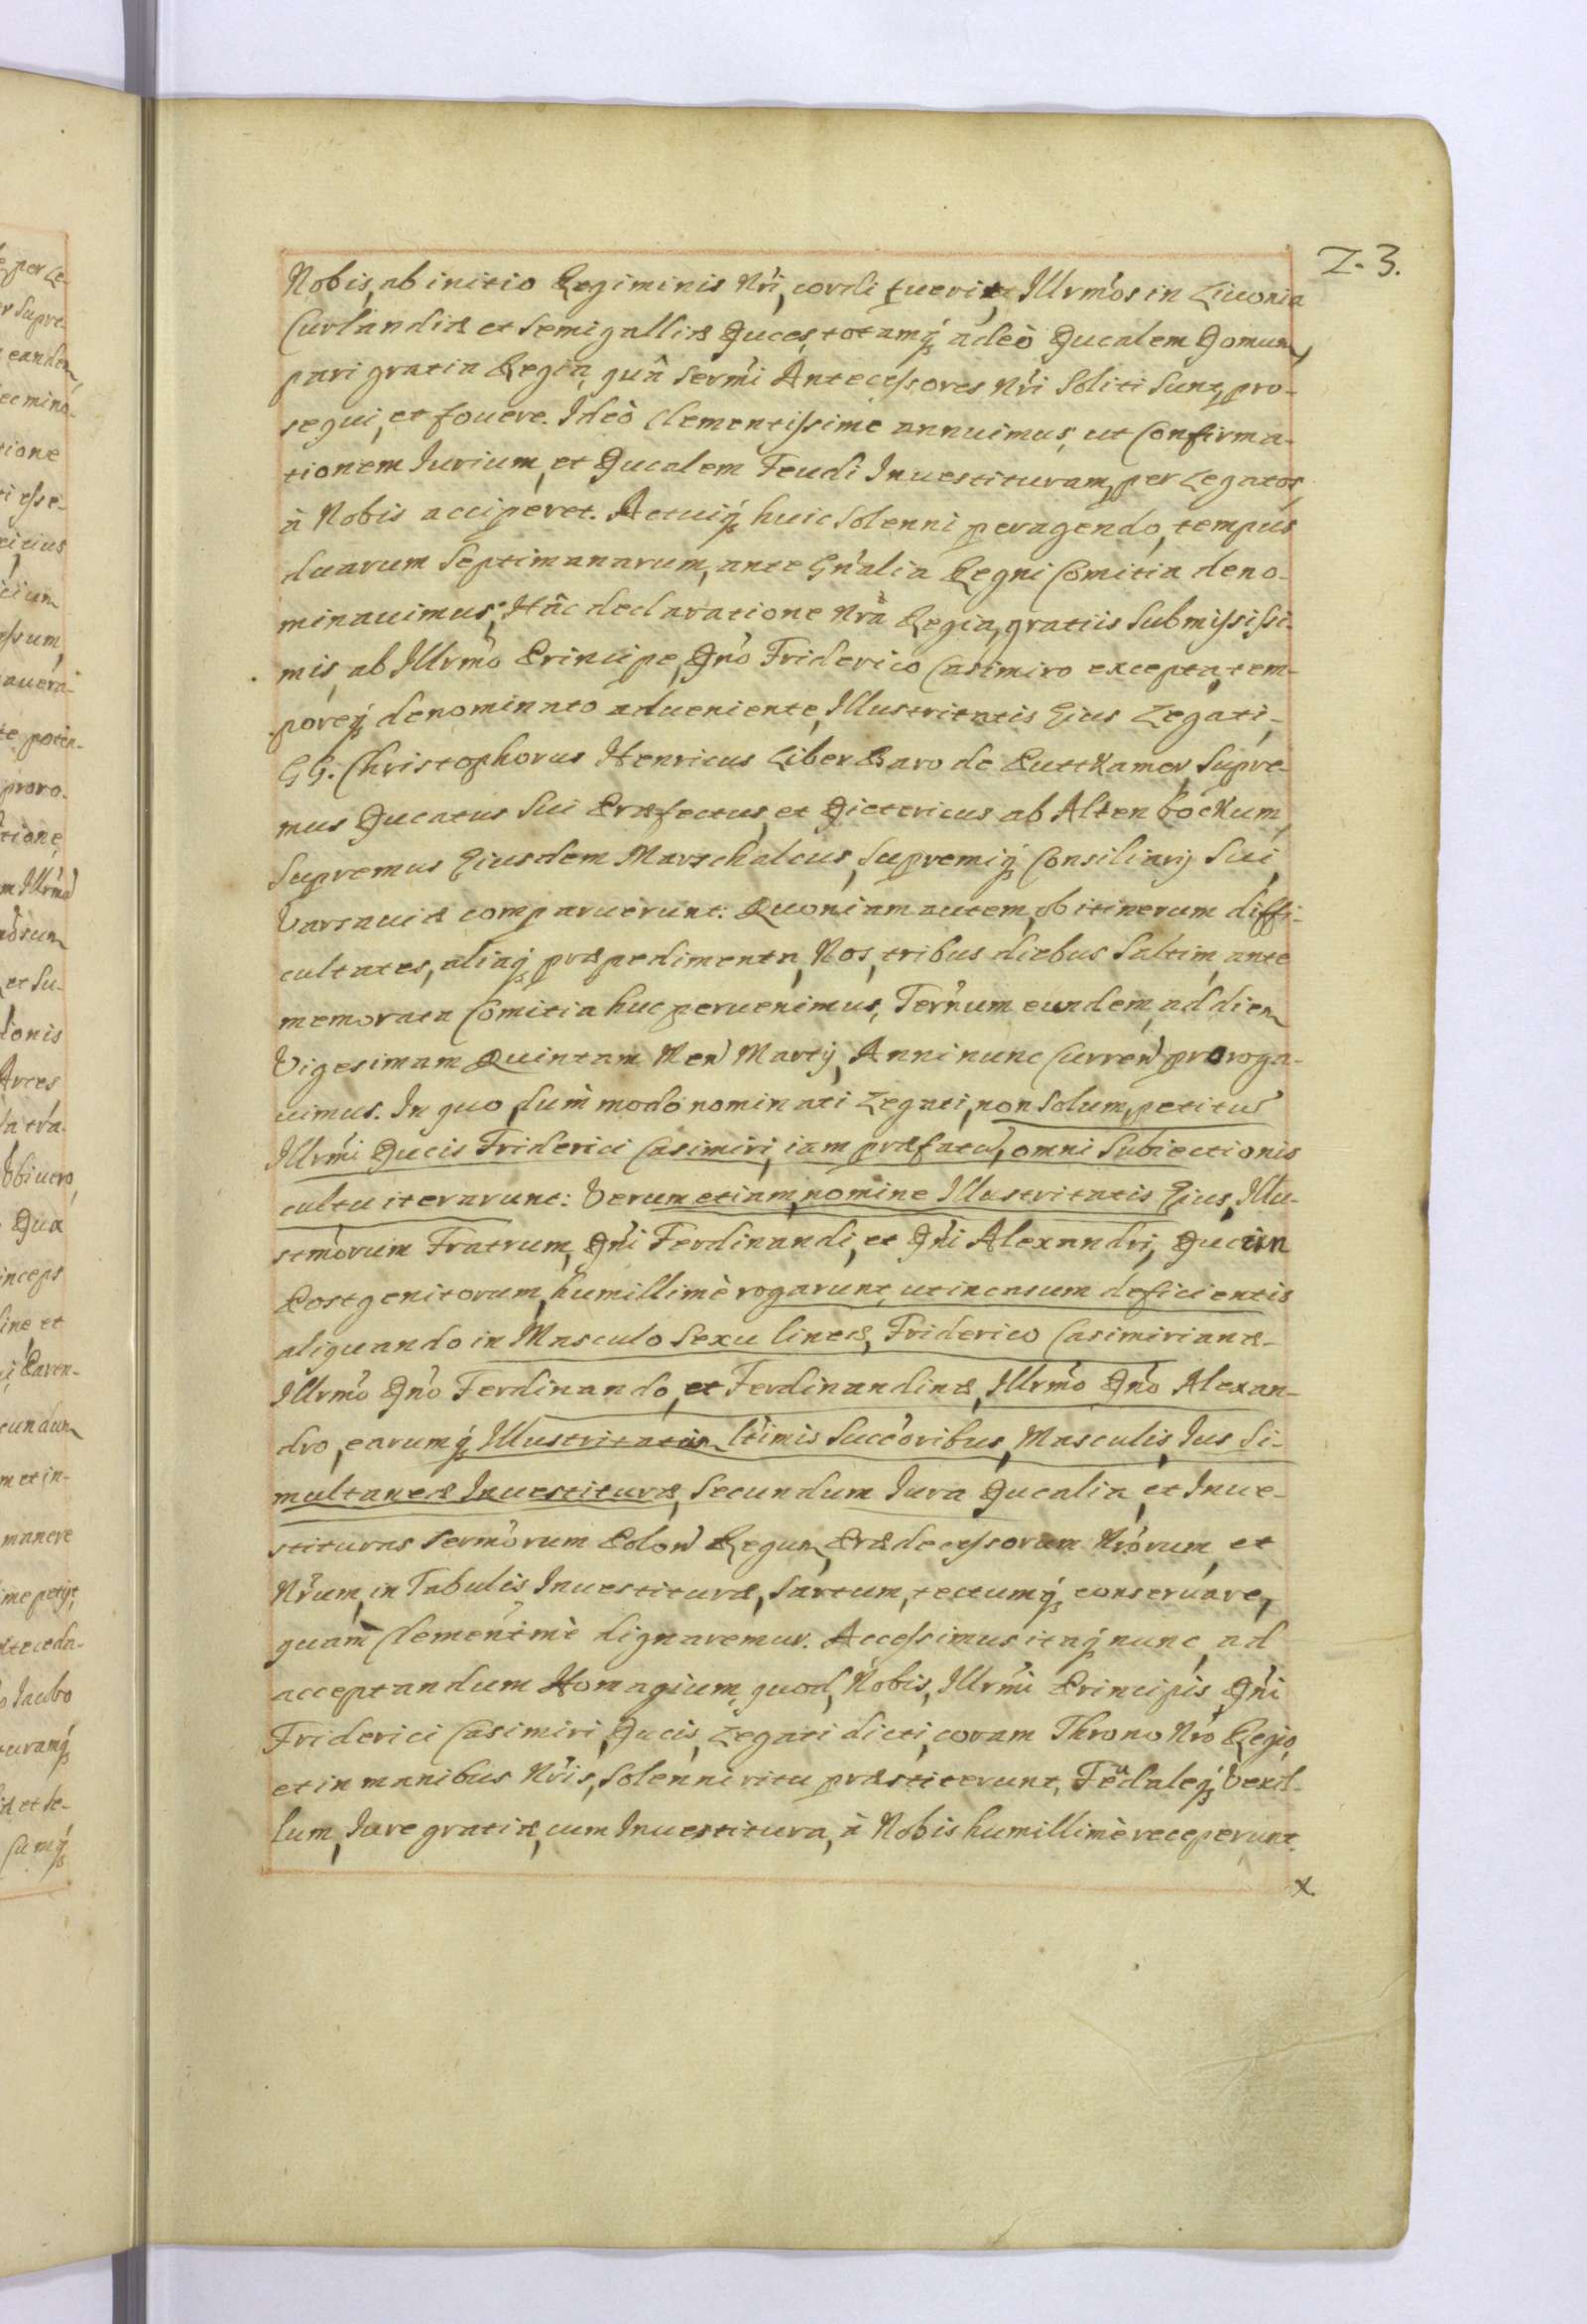 Z. 3.
Nobis, ab initio Regiminis Nr̃i, cordi fuerit, Illrm̃os in Liuonia
Curlandiæ et Semigalliæ Duces, totamq́ adeò Ducalem Domum,
pari gratia Regia, quâ Serm̃i Antecessores Nr̃i soliti sunt, pro-
sequi, et fouere. Ideò Clementissimè annuimus, ut Confirma-
tionem Iurium, et Ducalem Feudi Inuestituram, per Legatos,
à Nobis acciperet. Actuiq́ huic solenni peragendo, tempus
duarum Septimanarum, ante Gñalia Regni Comitia deno-
minauimus; Hâc declaratione Nr̃â Regia, gratiis submississi-
mis, ab Illrm̃o Principe, Dño Friderico Casimiro excepta, tem-
poreq́ denominato adueniente, Illustritatis Ejus Legati,
GG. Christophorus Henricus Liber Baro de Puttkamer, Supre-
mus Ducatus Sui Præfectus, et Dietericus ab Alten bockum,
Supremus Ejusdem Marschalcus, Supremiq́ Consiliarij Sui,
Varsauiæ comparuerunt: Quoniam autem, ob itinerum diffi-
cultates, aliaq́ præpedimenta, Nos, tribus diebus saltim, ante
memorata Comitia huc peruenimus, Ter̃num eundem, ad diem
Vigesimam Quintam Men̄ Martij, Anni nunc Curren̄ proroga-
uimus. In quo, dum modò nominati Legati, non solum, petitū
Illrm̃i Ducis Friderici Casimiri, iam præfatū, omni subiectionis
cultu iterarunt: Verum etiam, nomine Illustritatis Ejus, Illu-
strm̃orum Fratrum, Dñi Ferdinandi, et Dñi Alexandri, Ducum
Postgenitorum, humillimè rogarunt, ut in casum deficientis
aliquando in Masculo Sexu lineæ, Friderico Casimirianæ-
Illrm̃o Dño Ferdinando, et Ferdinandinæ, Illrm̃o Dño Alexan-
dro, earumq́ Illustritatum ltĩmis Succ̃oribus, Masculis, Jus Si-
multaneæ Inuestituræ, Secundum Iura Ducalia, et Inue-
stituras Serm̃orum Polon̄ Regum, Prædecessorum Nr̃orum, et
Nr̃um, in Tabulis Inuestituræ, sartum, tectumq́, conseruare,
quam Clementm̃è dignaremur. Accessimus itaq́ nunc, ad
acceptandum Homagium, quod, Nobis, Illrm̃i Principis Dñi
Friderici Casimiri, Ducis, Legati dicti, coram Throno Nr̃o Regio,
et in manibus Nr̃is, solenni ritu præstiterunt, Feudaleq́ Vexil-
lum, Iure gratiæ, cum Inuestitura, à Nobis humillimè receperunt.
x